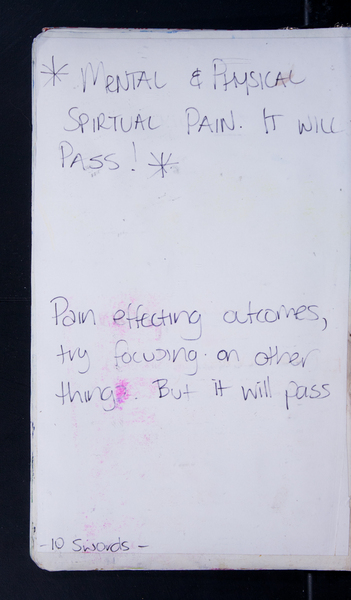 * MENTAL & PHYSICAL
SPIRTUAL PAIN. IT WILL
PASS! *
Pain effecting outcomes,
try focusing on other
things. But it will pass
-10 Swords-